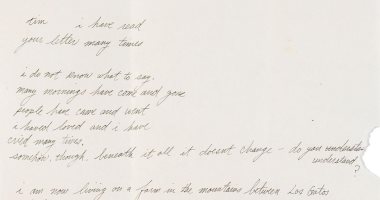 tim i have read
your letter many times
i do not know what to say.
many mornings have come and gone
people have came and went
i haved loved and i have
cried many times.
somehow, though, beneath it all it doesnt change - do you understan
understand
?
i am now living on a farm in the mountains between Los Gatos